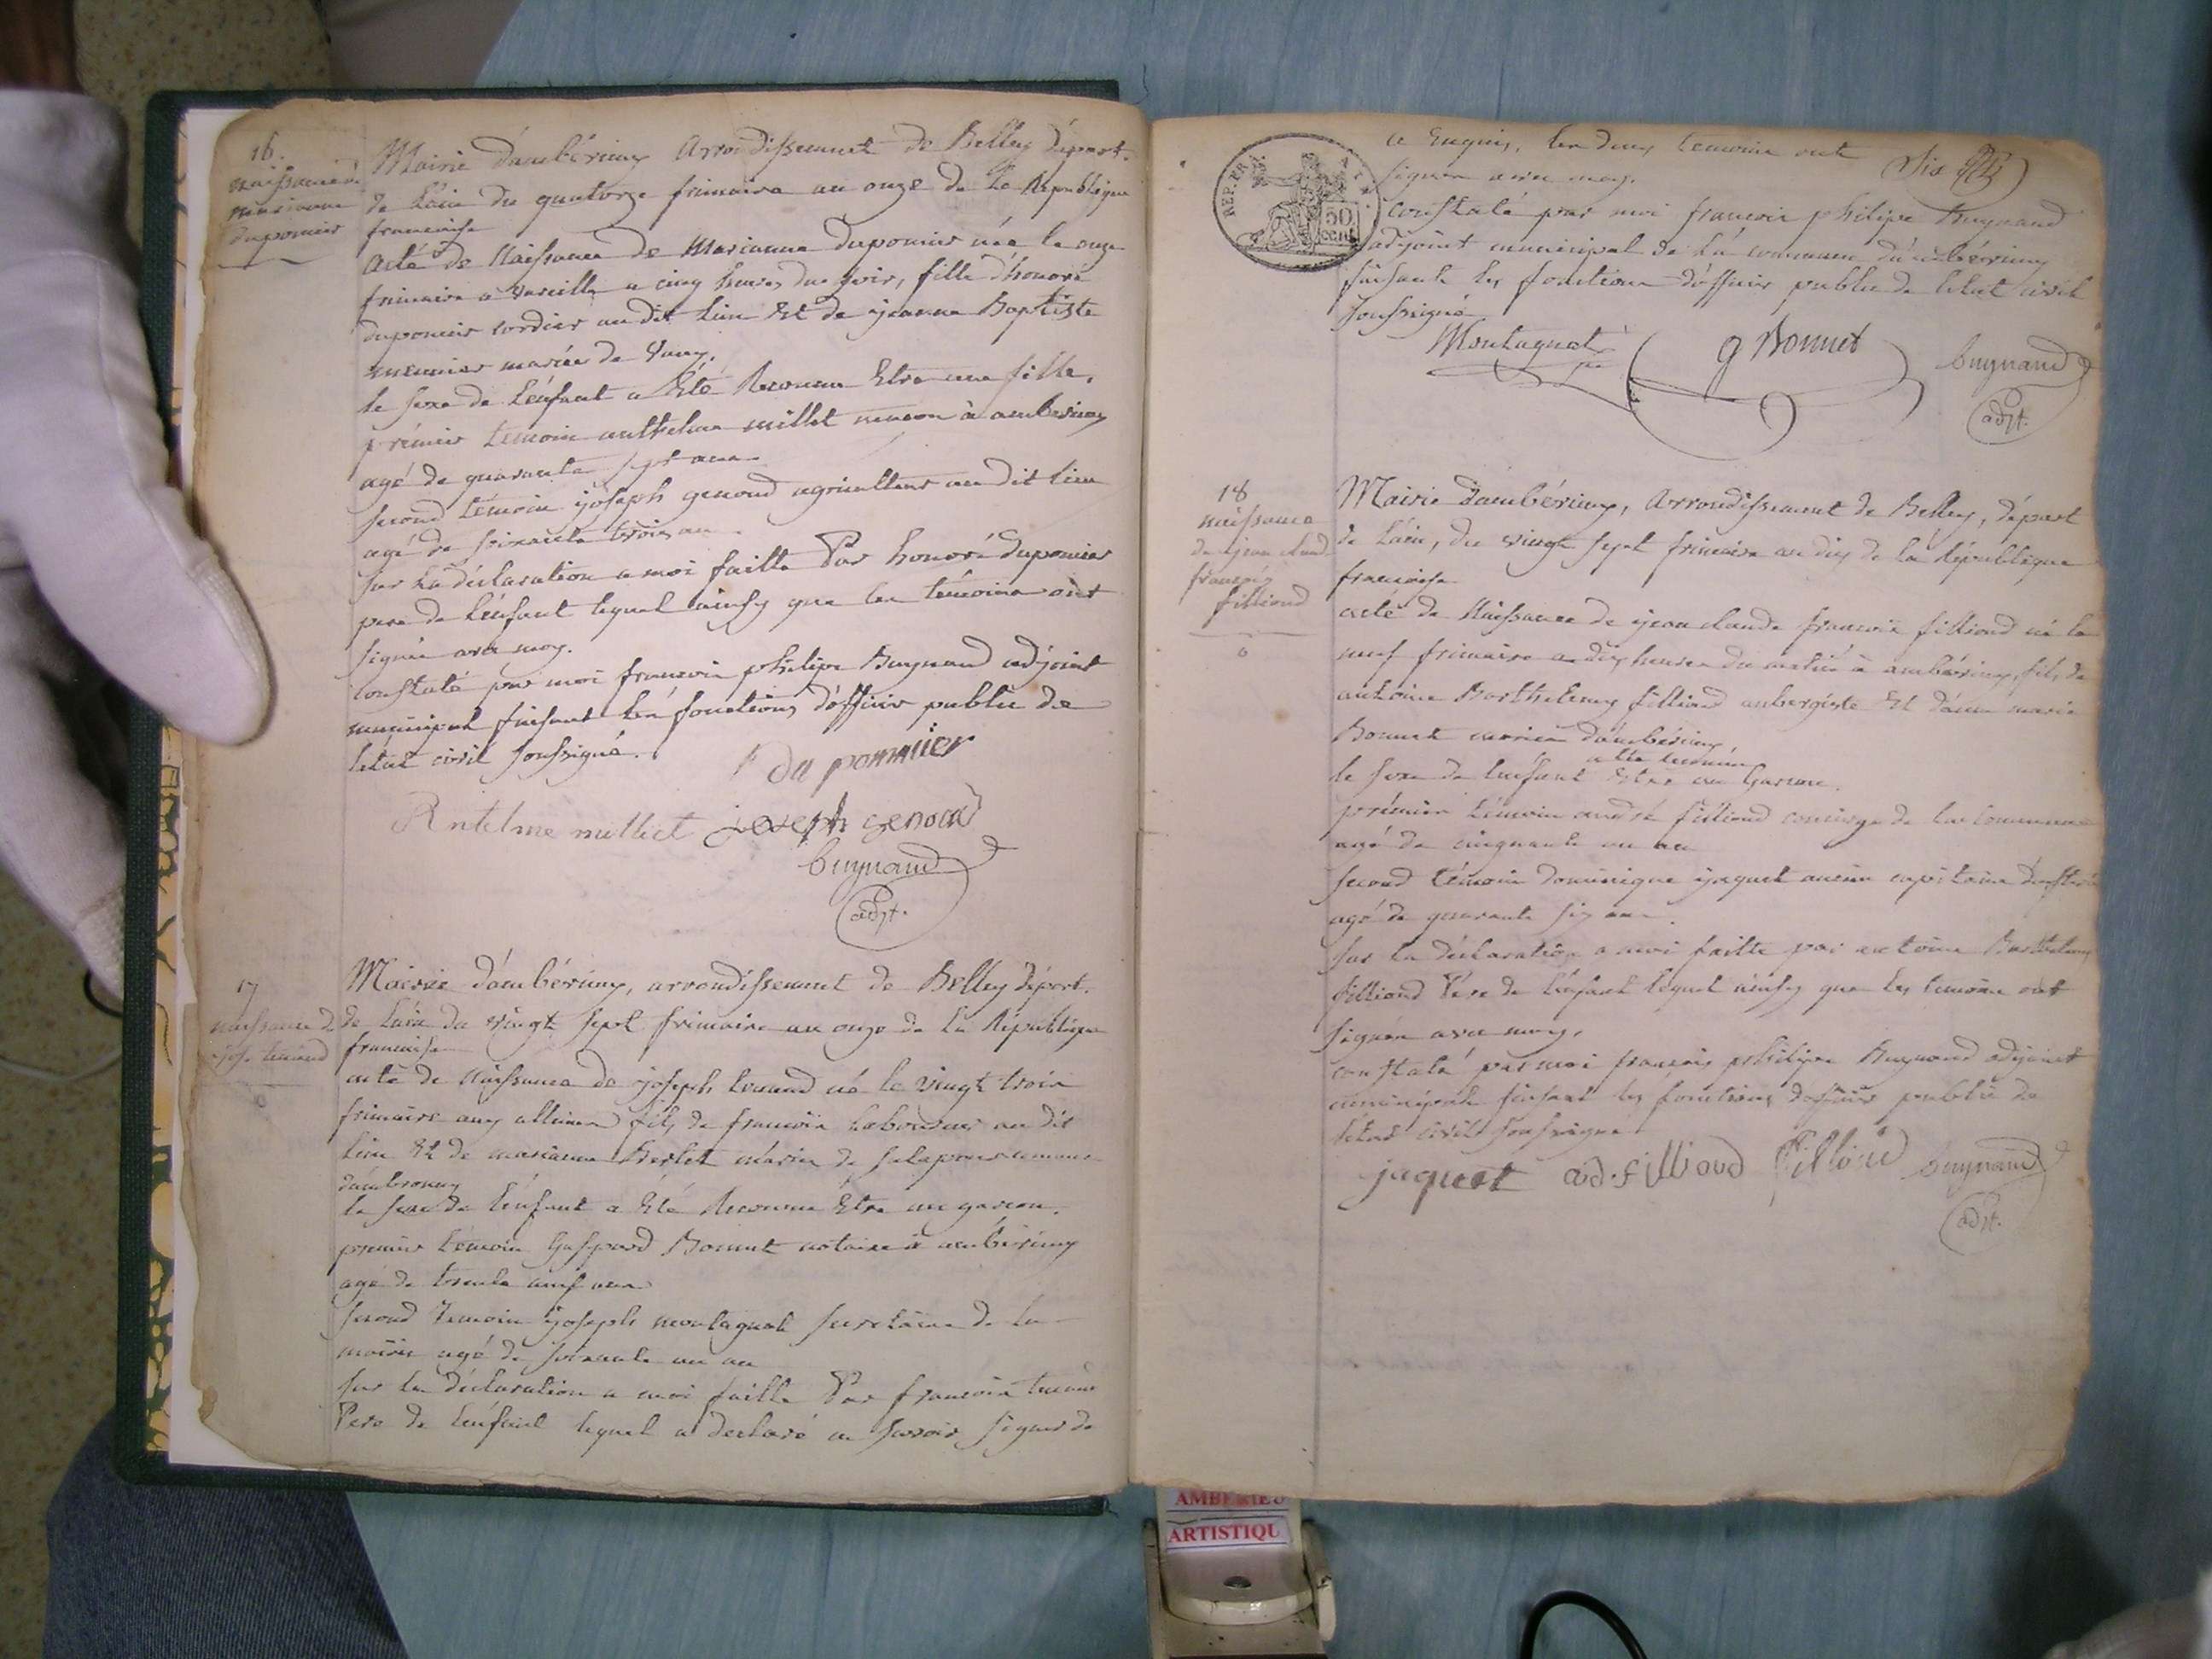 16.
naissance de
marianne
dupomier
Mairie d'ambérieux Arrondissement de Belley départ.
de L'ain du quatorze frimaire an onze de la République
francaise
acte de Naissance de Marianne dupomier née le onze
frimaire a Vareille a cinq heures du soir, fille d'honoré
dupomier cordier au dit lieu Et de jeanne Baptiste
meunier mariée de
le sexe de L'enfant a Eté Reconnu Etre une fille.
prémier temoin anthelme millet macon à amberieux
agé de quarante sept ans
second témoin joseph genoud agriculteur au dit lieu
agé de soixante trois an
sur La déclaration a moi faitte Par honoré dupomier
pere de L'enfant lequel ainsy que les témoins ont
signée avec moy.
constaté par moi francois philipe Buynand adjoint
municipal faisant les fonctions d'officier public de
létat civil soussigné.
du pommier
Antelme milliet joseph genoud
buynand
adjt.
17
naissance de
jose. tenand
Mairie d'ambérieux, arrondissement de Belley départ.
de L'ain du vingt sept frimaire an onze de la République
francaise
acte de Naissance de joseph tenand né le vingt trois
frimaire aux allimes fils de francois laboureur au dit
lieu Et de marianne Berlet mariés de
d'ambronay
le sexe de lénfant a Eté Reconnu Etre un garcon.
premier témoin Gaspard Bonnet notaire à ambérieux
agé de trente neuf ans
second temoin joseph montagnat secretaire de la
mairie agé de soixante un an
sur la déclaration a moi faitte Par francois tenand
Pere de lénfant lequel a declaré ne savoir signer de
ce Enquis, les deux temoins ont
Six
signer avec moy.
REP. FRA
50
cent
constaté par moi francois philipe buynand
adjoint municipal de la commune d'ambérieux
faisant les fonctions d'officier public de létat civil
soussigné
Montagnat
g Bonnet
buynand
adjt.
18
naissance
de jean claude
françois
filliond
Mairie d'ambérieux, Arrondissement de Belley, départ
de L'ain, du vingt sept frimaire an dix de la République
francaise
acte de Naissance de jean claude francois filliond né le
neuf frimaire a dix heures du matin à ambérieux, fils de
antoine Barthelemy filliond aubergiste Et d'anne marie
Bonnet mariés d'ambérieux,
a été reconnu
le sexe de lenfant Etre un Garcon.
prémier témoin andré filliond concierge de la commune
agé de cinquante un an
second témoin dominique jaquet ancien capitaine
agé de quarante six ans.
sur la déclaration a moi faitte par antoine Barthelemy
filliond Pére de lénfant lequel ainsy que les temoins ont
signée avec moy.
constaté par moi françois philipe Buynand adjoint
municipal faisant les fonctions d'officier public de
létat civil soussigné
jaquet ad. fillioud filliou buynand
adjt.
AMBERIEU
ARTISTIQU